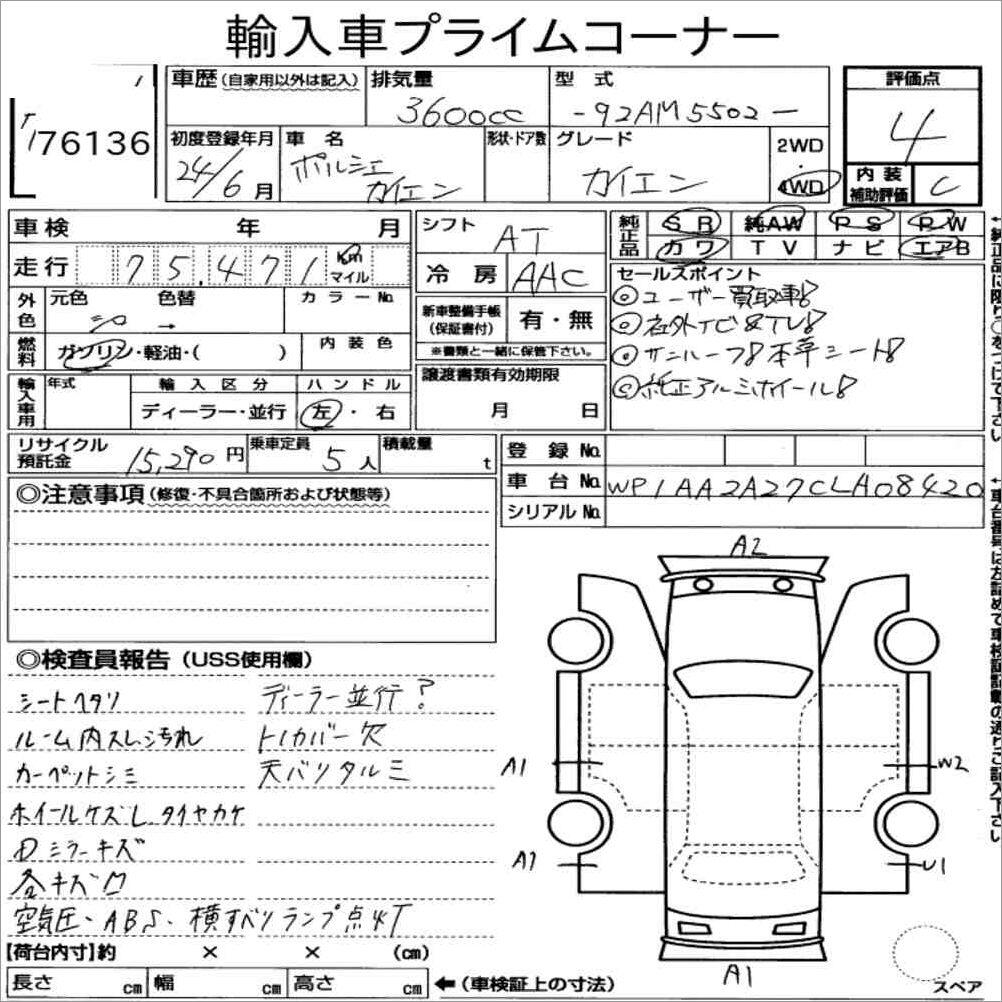 輸入車プライムコーナー
76136
車歴 (自家用以外は記入)
排気量
3600cc
型 式
-92AM5502-
評価点
4
初度登録年月
24/6月
車 名
ポルシェ
カイエン
形状・ドア数
グレード
カイエン
2WD
4WD
内 装
補助評価
C
車検 年 月
シフト
AT
純正品
SR 純AW PS PW
カワ TV ナビ エアB
走行 75,471 Km
マイル
冷 房
AAC
セールスポイント
◎ユーザー買取車!
◎社外TV&TV!
◎サンルーフ!本革シート!
◎純正アルミホイール!
外色
元色 色替 カラーNo.
シロ →
新車整備手帳
(保証書付)
有・無
※書類と一緒に保管下さい。
燃料
ガソリン・軽油・( )
内 装 色
輸入車用
年式
輸 入 区 分
ディーラー・並行
ハ ン ド ル
左・右
譲渡書類有効期限
月 日
リサイクル
預託金
15,290円
乗車定員
5人
積載量
t
登 録 No.
車 台 No. WP1AA2A27CLA08420
シリアル No.
◎注意事項 (修復・不具合箇所および状態等)
◎検査員報告 (USS使用欄)
シートヘタリ
ディーラー並行?
ルーム内スレ汚れ
トノカバー欠
カーペットシミ
天バリタルミ
ホイールケズレ タイヤカケ
Dミラーキズ
各キズ凹
空気圧・ABS・横すべりランプ点灯
A2
A1
W2
A1
U1
A1
スペア
【荷台内寸】約 × × (cm)
長さ cm 幅 cm 高さ cm ←(車検証上の寸法)